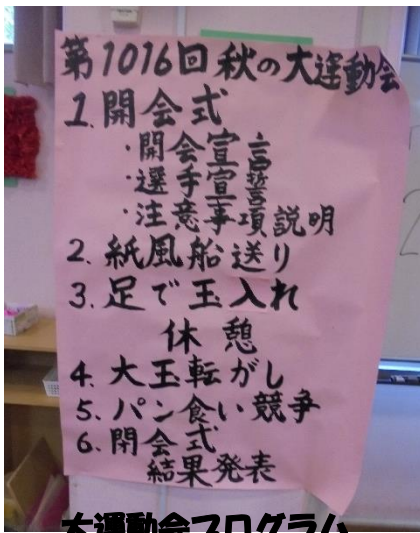 第1016回秋の大運動会
1.開会式
・開会宣言
・選手宣誓
・注意事項説明
2.紙風船送り
3.足で玉入れ
休憩
4.大玉転がし
5.パン食い競争
6.閉会式
結果発表
大運動会プログラム